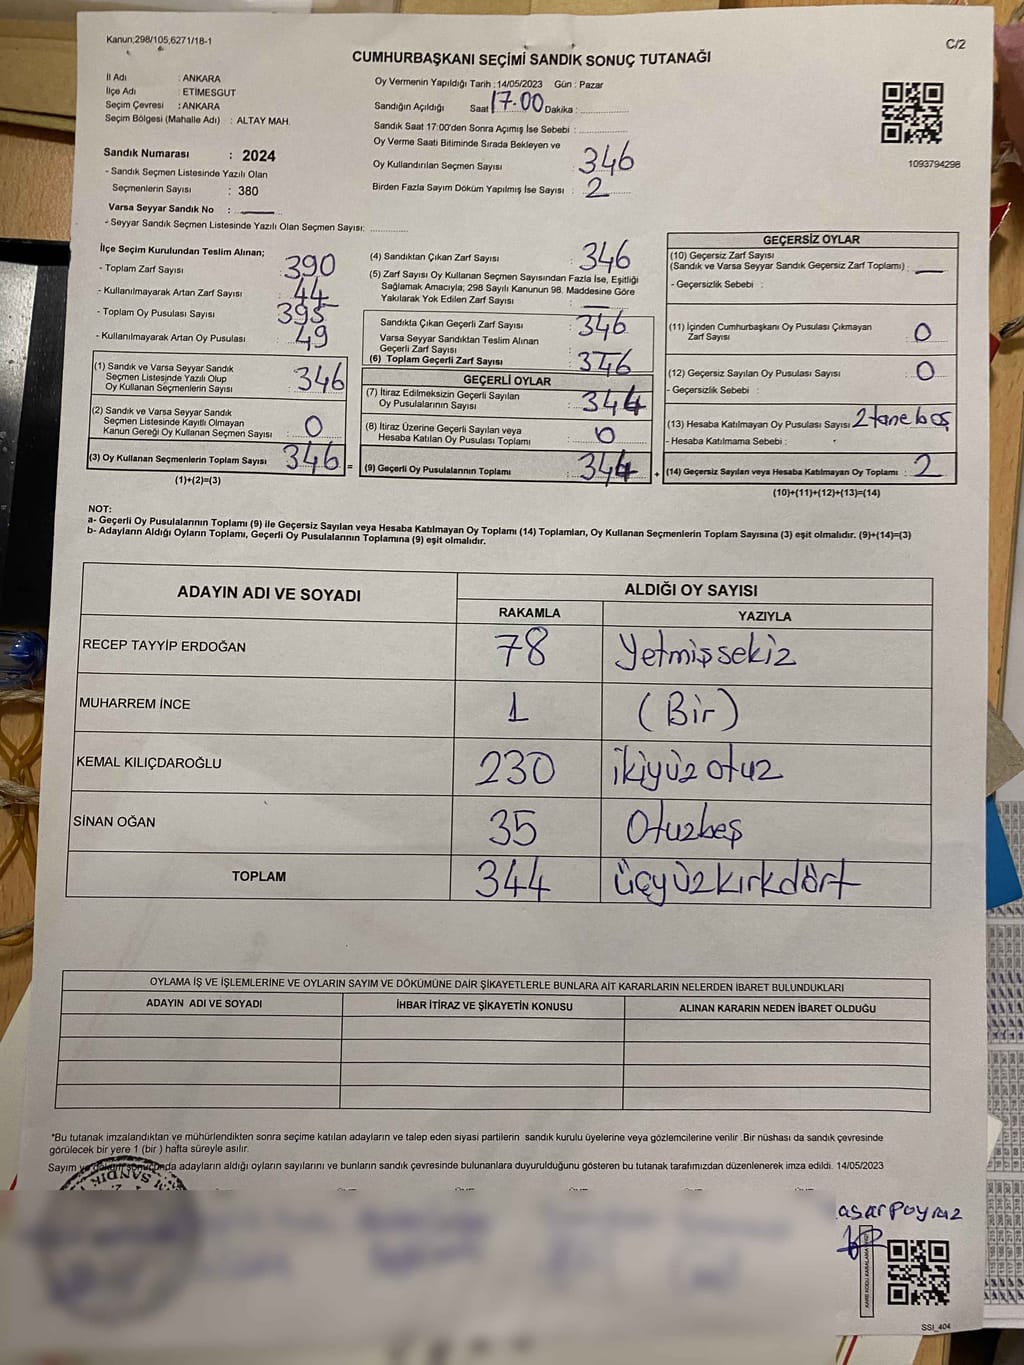 Kanun;298/105,6271/18-1
C/2
CUMHURBAŞKANI SEÇİMİ SANDIK SONUÇ TUTANAĞI
İl Adı : ANKARA
İlçe Adı : ETİMESGUT
Seçim Çevresi : ANKARA
Seçim Bölgesi (Mahalle Adı) : ALTAY MAH.
Sandık Numarası : 2024
- Sandık Seçmen Listesinde Yazılı Olan
Seçmenlerin Sayısı : 380
Varsa Seyyar Sandık No :
- Seyyar Sandık Seçmen Listesinde Yazılı Olan Seçmen Sayısı:
Oy Vermenin Yapıldığı Tarih :14/05/2023 Gün : Pazar
Sandığın Açıldığı Saat 17.00 Dakika :
Sandık Saat 17:00'den Sonra Açımış İse Sebebi :
Oy Verme Saati Bitiminde Sırada Bekleyen ve
Oy Kullandırılan Seçmen Sayısı : 346
Birden Fazla Sayım Döküm Yapılmış İse Sayısı : 2
1093794298
İlçe Seçim Kurulundan Teslim Alınan;
- Toplam Zarf Sayısı : 390
- Kullanılmayarak Artan Zarf Sayısı : 44
- Toplam Oy Pusulası Sayısı : 395
- Kullanılmayarak Artan Oy Pusulası : 49
(1) Sandık ve Varsa Seyyar Sandık
Seçmen Listesinde Yazılı Olup
Oy Kullanan Seçmenlerin Sayısı : 346
(2) Sandık ve Varsa Seyyar Sandık
Seçmen Listesinde Kayıtlı Olmayan
Kanun Gereği Oy Kullanan Seçmen Sayısı : 0
(3) Oy Kullanan Seçmenlerin Toplam Sayısı : 346 =
(1)+(2)=(3)
(4) Sandıktan Çıkan Zarf Sayısı : 346
(5) Zarf Sayısı Oy Kullanan Seçmen Sayısından Fazla İse, Eşitliği
Sağlamak Amacıyla; 298 Sayılı Kanunun 98. Maddesine Göre
Yakılarak Yok Edilen Zarf Sayısı :
Sandıkta Çıkan Geçerli Zarf Sayısı : 346
Varsa Seyyar Sandıktan Teslim Alınan
Geçerli Zarf Sayısı :
(6) Toplam Geçerli Zarf Sayısı : 346
GEÇERLİ OYLAR
(7) İtiraz Edilmeksizin Geçerli Sayılan
Oy Pusulalarının Sayısı : 344
(8) İtiraz Üzerine Geçerli Sayılan veya
Hesaba Katılan Oy Pusulası Toplamı : 0
(9) Geçerli Oy Pusulalarının Toplamı : 344 +
GEÇERSİZ OYLAR
(10) Geçersiz Zarf Sayısı
(Sandık ve Varsa Seyyar Sandık Geçersiz Zarf Toplamı) :
- Geçersizlik Sebebi :
(11) İçinden Cumhurbaşkanı Oy Pusulası Çıkmayan
Zarf Sayısı : 0
(12) Geçersiz Sayılan Oy Pusulası Sayısı : 0
- Geçersizlik Sebebi :
(13) Hesaba Katılmayan Oy Pusulası Sayısı : 2 tane boş
- Hesaba Katılmama Sebebi :
(14) Geçersiz Sayılan veya Hesaba Katılmayan Oy Toplamı : 2
(10)+(11)+(12)+(13)=(14)
NOT:
a- Geçerli Oy Pusulalarının Toplamı (9) ile Geçersiz Sayılan veya Hesaba Katılmayan Oy Toplamı (14) Toplamları, Oy Kullanan Seçmenlerin Toplam Sayısına (3) eşit olmalıdır. (9)+(14)=(3)
b- Adayların Aldığı Oyların Toplamı, Geçerli Oy Pusulalarının Toplamına (9) eşit olmalıdır.
ADAYIN ADI VE SOYADI
ALDIĞI OY SAYISI
RAKAMLA YAZIYLA
RECEP TAYYİP ERDOĞAN 78 Yetmişsekiz
MUHARREM İNCE 1 (Bir)
KEMAL KILIÇDAROĞLU 230 ikiyüz otuz
SİNAN OĞAN 35 Otuzbeş
TOPLAM 344 üçyüzkırkdört
OYLAMA İŞ VE İŞLEMLERİNE VE OYLARIN SAYIM VE DÖKÜMÜNE DAİR ŞİKAYETLERLE BUNLARA AİT KARARLARIN NELERDEN İBARET BULUNDUKLARI
ADAYIN ADI VE SOYADI İHBAR İTİRAZ VE ŞİKAYETİN KONUSU ALINAN KARARIN NEDEN İBARET OLDUĞU
*Bu tutanak imzalandıktan ve mühürlendikten sonra seçime katılan adayların ve talep eden siyasi partilerin sandık kurulu üyelerine veya gözlemcilerine verilir .Bir nüshası da sandık çevresinde
görülecek bir yere 1 (bir ) hafta süreyle asılır.
Sayım ve döküm sonucunda adayların aldığı oyların sayılarını ve bunların sandık çevresinde bulunanlara duyurulduğunu gösteren bu tutanak tarafımızdan düzenlenerek imza edildi. 14/05/2023
asarpoyraz
SSI_404